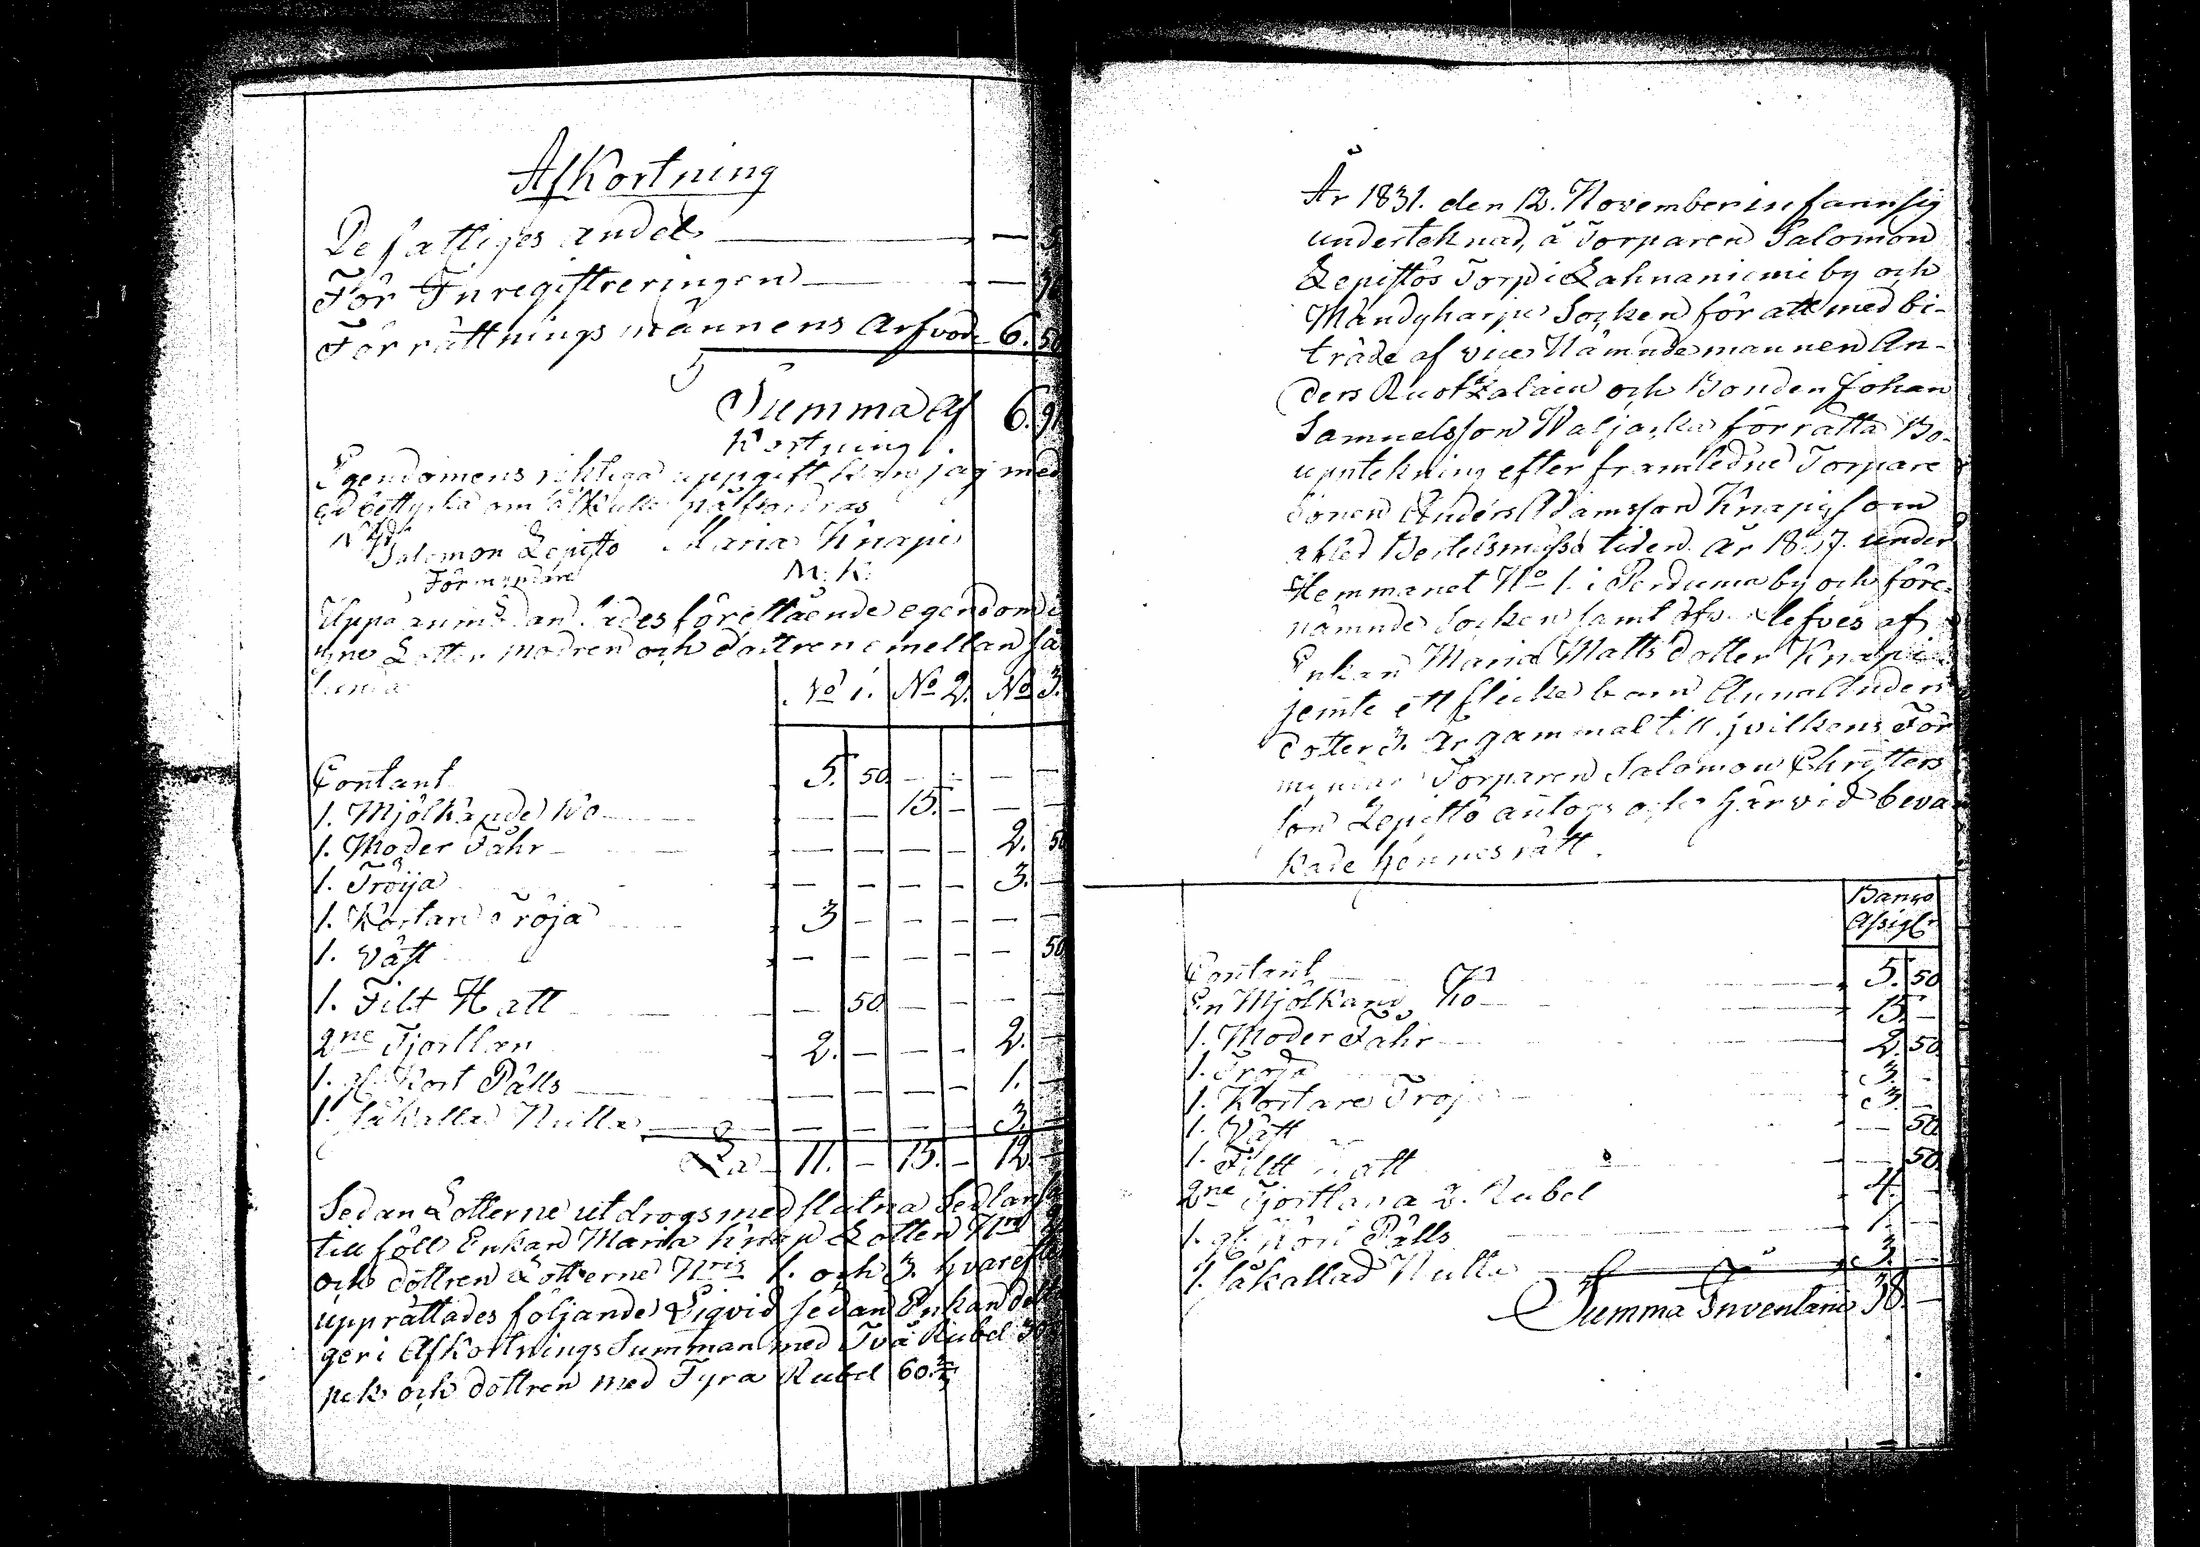 Afkortning
De fattiges andel — —
För Inregistreringen — —
Förrättningsmännens Arfvode 6. 50
Summa Af 6. 91
kortning
Egendomens riktiga uppgift kan jag med
ed bestyrka om påfordras
Salomon Lepistö Maria Knapi
Förmyndare M. K.
Uppå anmodan lades föreståendе egendom i
trne Lotter modren och dottren emellan så
No 1. No 2. No 3.
Contant 5. 50 — — — —
1. Mjölkande Ko — — 15. — — —
1. Moder Fåhr — — — — 2. 50
1. Tröija — — — — 3. —
1. Kortare Tröja 3 — — — — —
1. Väst — — — — — 50
1. Filt Hatt — 50 — — — —
2ne Tjortlar 2. — — — 2. —
1. gl. Kort Pälls — — — — 1. —
1. såkallad Kulla — — — — 3. —
La 11. — 15. — 12 —
Sedan Lotterne utdrogs med slutna Sedlar
tillföll Enkan Maria Knapi Lotten Nro
och dottren Lotterne Nris 1. och 3. hvarefter
upprättades följande Liqvid sedan Enkan del
ger i AfkortningsSumman med Två Rubel 30
pek och dottren med Fyra Rubel 60
År 1831. den 12. November infann sig
undertecknad, å Torparen Salomon
Lepistös Torp i Lahnaniemi by och
Mändyharju Socken för att med bi-
träde af vice Nämndemannen An-
ders Ruotzalain och Bonden Johan
Samuelsson Waljacka förrätta Bo-
upptekning efter framledne Torpare
sonen Anders Adamsson Knapi, som
afled Bertelsmässo tiden år 1827. under
Hemmanet No 1. i Pertuma by och före-
nämnde Socken samt efterlefves af
Enkan Maria Matts dotter Knapi
jemte ett flicke barn Anna Anders
dotter 3. år gammal till hvilkens För
myndare Torparen Salomon Christers
son Lepistö antogs och härvid beva
kade hennes rätt.
Banco
Assigr
Contant 5. 50
En Mjölkand Ko 15. —
1. Moder Fåhr 2. 50
1. Tröja 3. —
1. Kortare Tröja 3. —
1. Väst — 50
1. Filtt Hatt — 50
2ne Tjortlar a 2. Rubel 4. —
1. gl. Kort Pälls 1. —
1. såkallad Kulla 3. —
Summa Inventarie 38. —